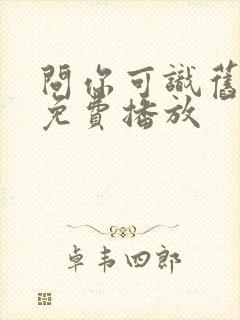 問你可識舊
免費播放
卓韦四郎